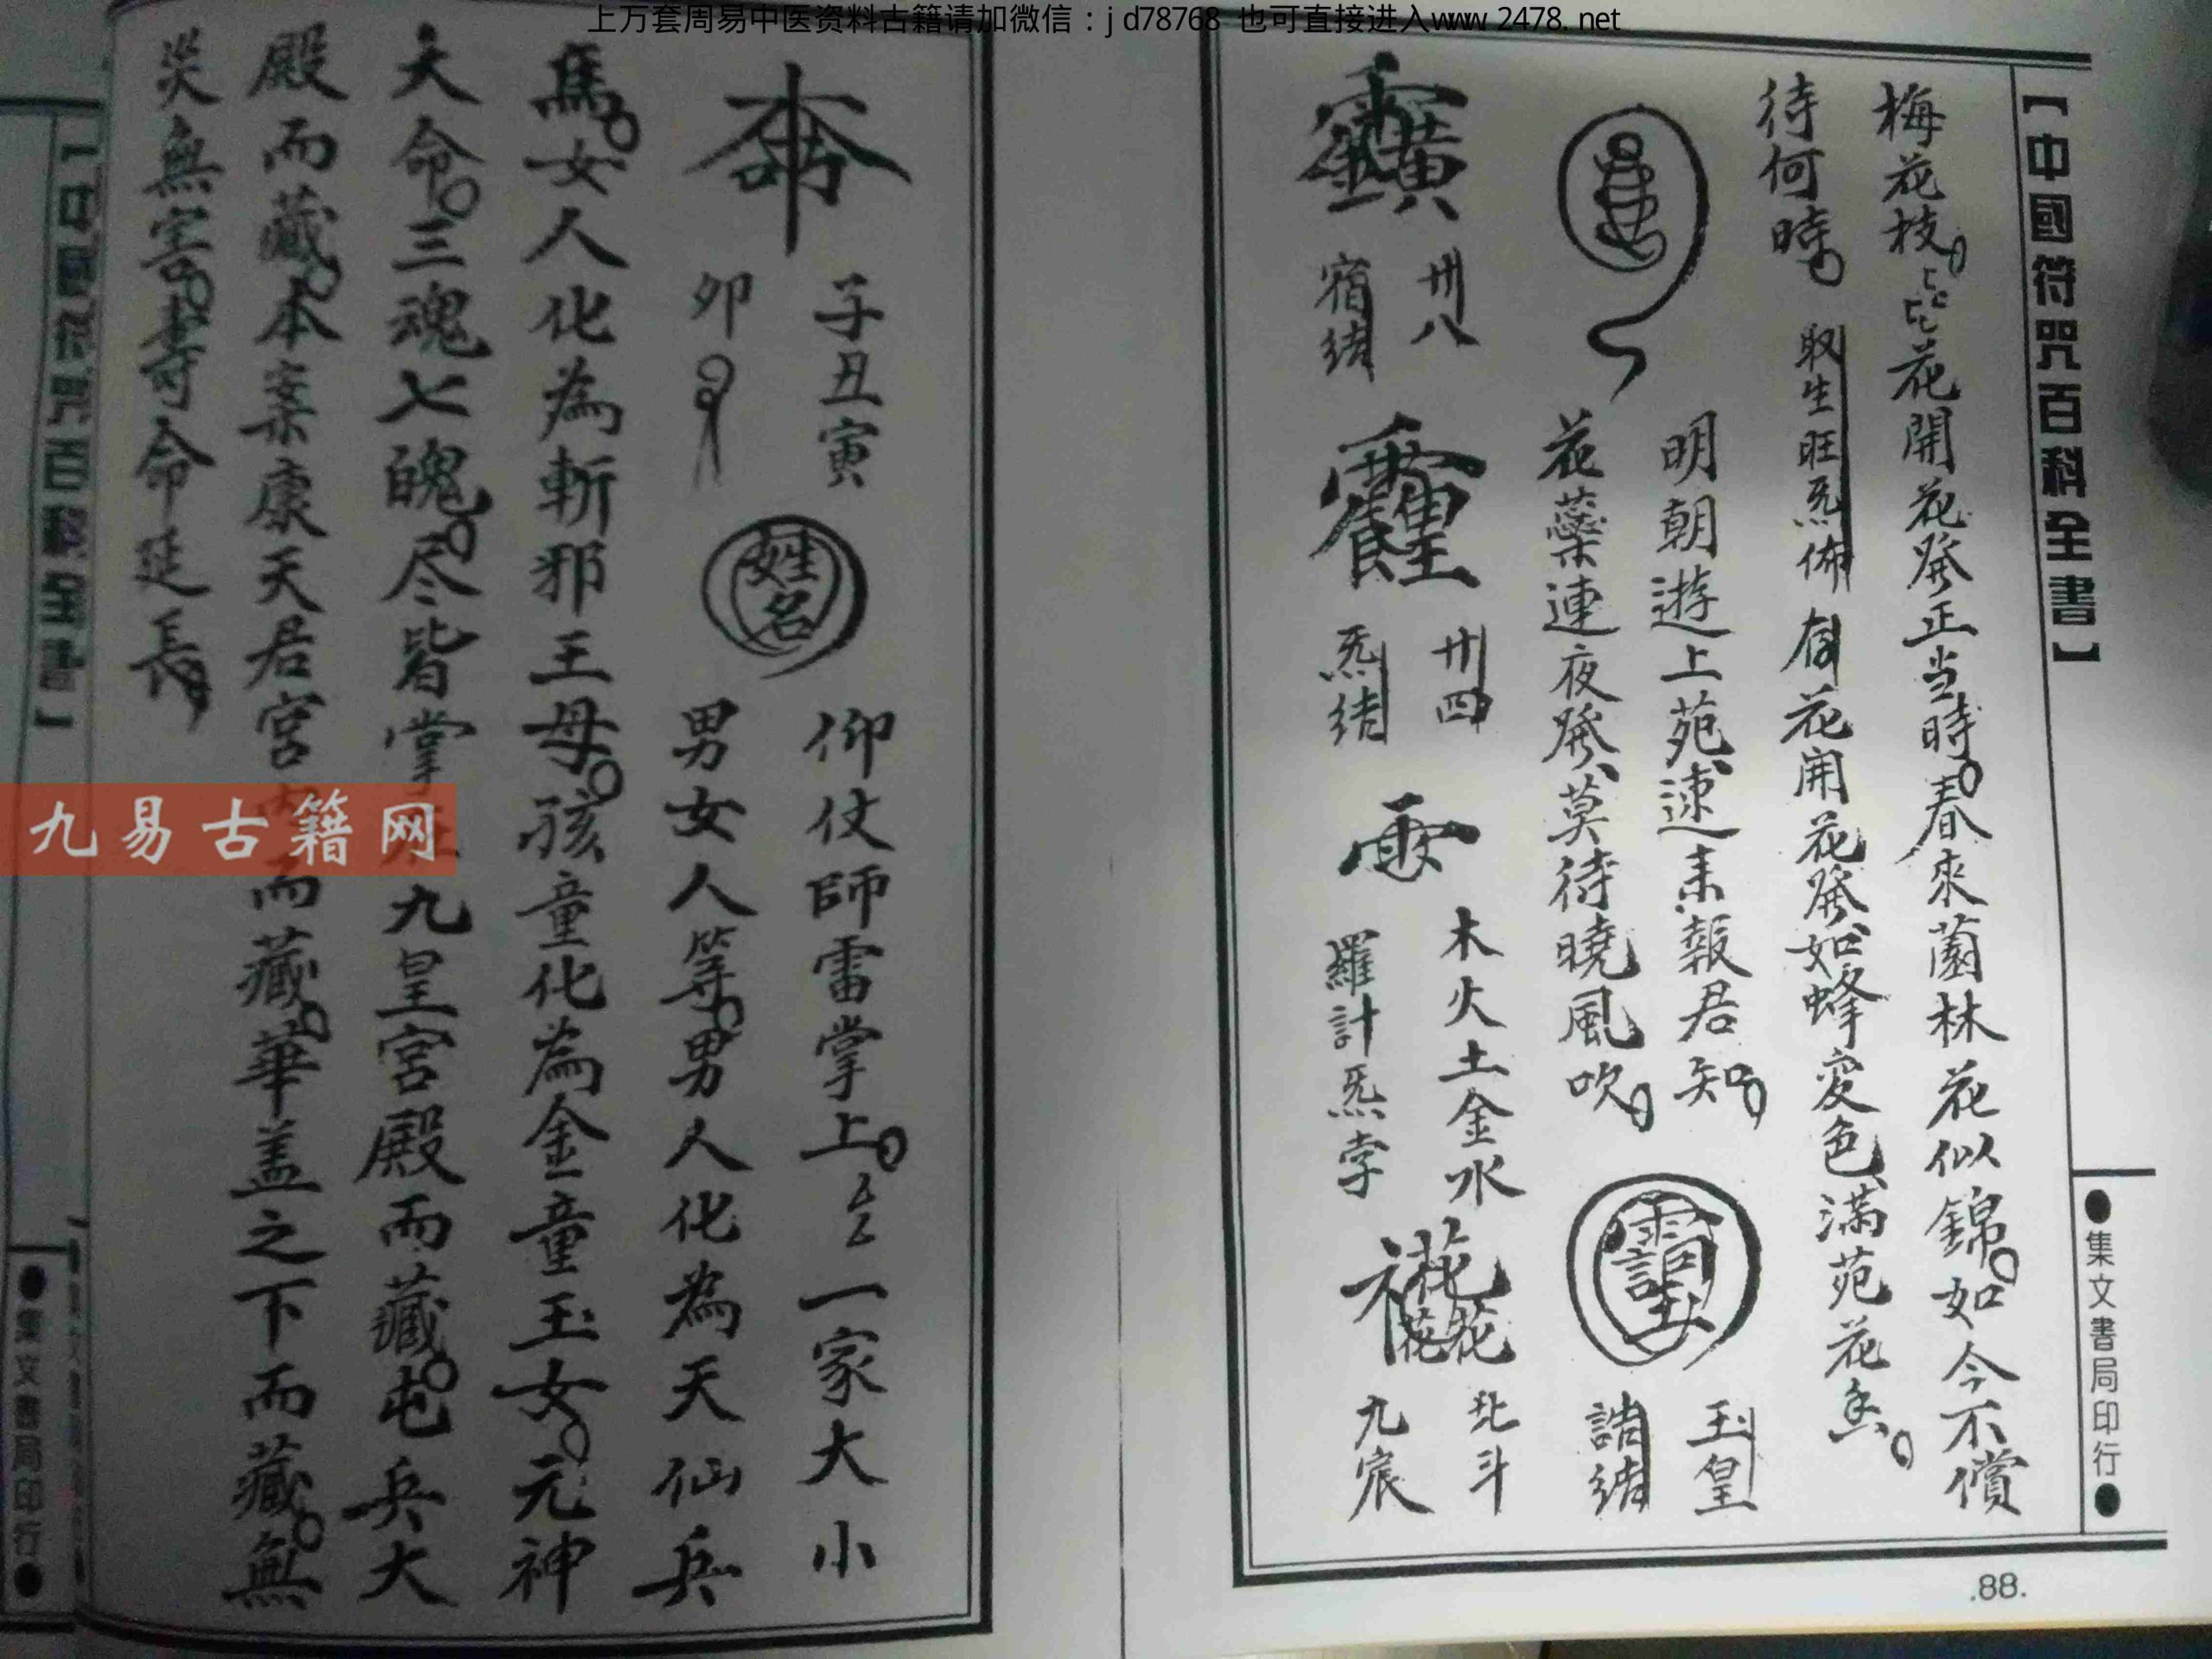 上万套周易中医资料古籍请加微信：jd78768 也可直接进入www.2478.net
【中國符咒百科全書】
●集文書局印行●
梅花枝花開花発正当時春來園林花似錦如今不償
待何時
取生旺炁佈
花開花発如蜂愛色滿苑花
明朝遊上苑速耒報君知
花蘂連夜発莫待曉風吹
玉皇
請結
卅八
宿結
卅四
炁结
木火土金水
羅計炁孛
北斗
九宸
.88.
子丑寅
卯
姓名
仰仗師雷掌上一家大小
男女人等男人化為天仙兵
馬女人化為斬邪王母孩童化為金童玉女元神
大命三魂七魄尽皆掌九皇宮殿而藏屯兵大
殿而藏本案康天君宮而藏華盖之下而藏無
災無害寿命延長
九易古籍网
【中國符咒百科全書】
●集文書局印行●